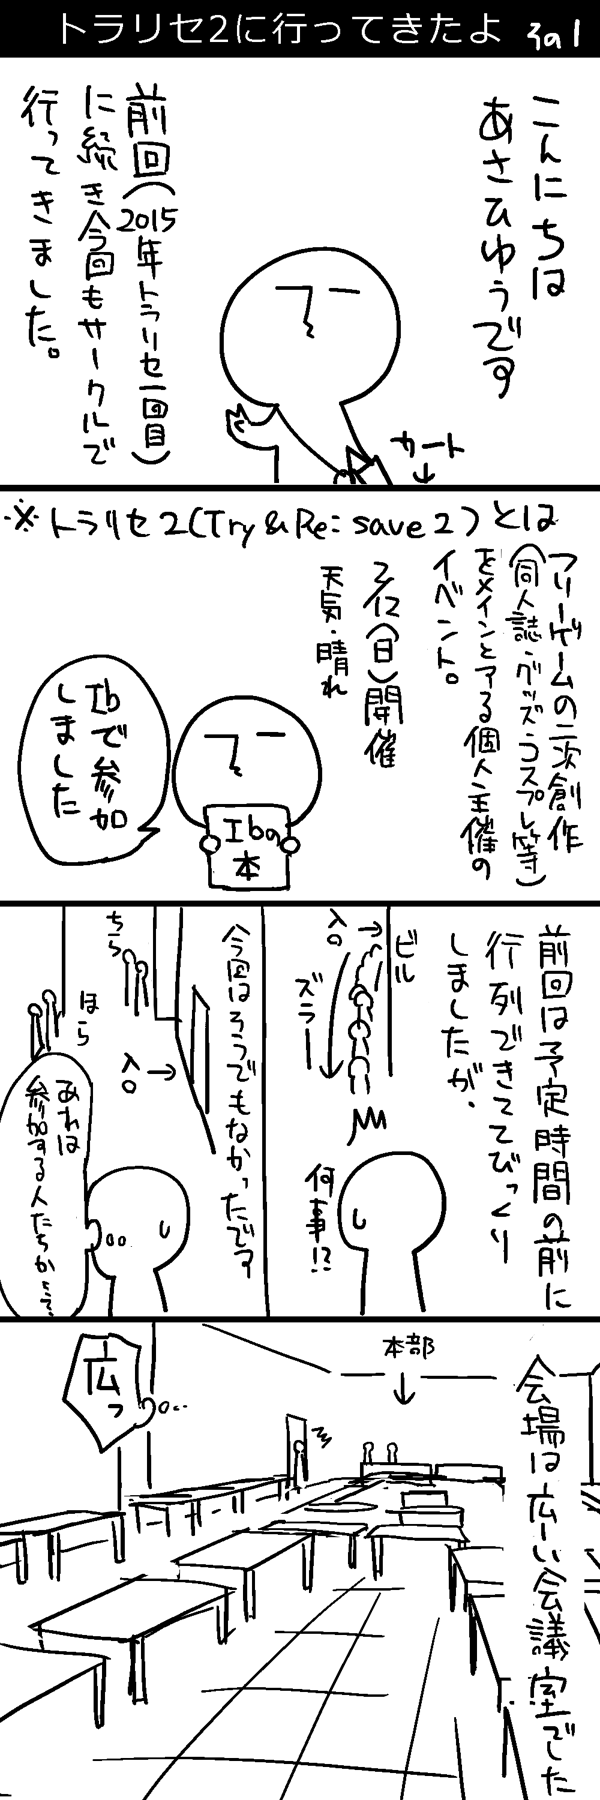 トラリセ2に行ってきたよ その1
こんにちは
あさひゆうです
前回(2015年トラリセ一回目)
に続き今回もサークルで
行ってきました。
カート
↓
※トラリセ2(Try&Re:save2)とは
フリーゲームの二次創作
(同人誌・グッズ・コスプレ等)
をメインとする個人主催の
イベント。
2/12(日)開催
天気・晴れ
Ibで参加
しました
Ibの
本
前回は予定時間の前に
行列できててびっくり
しましたが、
ビル
入口→
ズラーー
何事!?
今回はそうでもなかったです
ちら
ほら
入口→
あれは
参加する人たちかな…?
会場は広い会議室でした
本部
↓
広っ